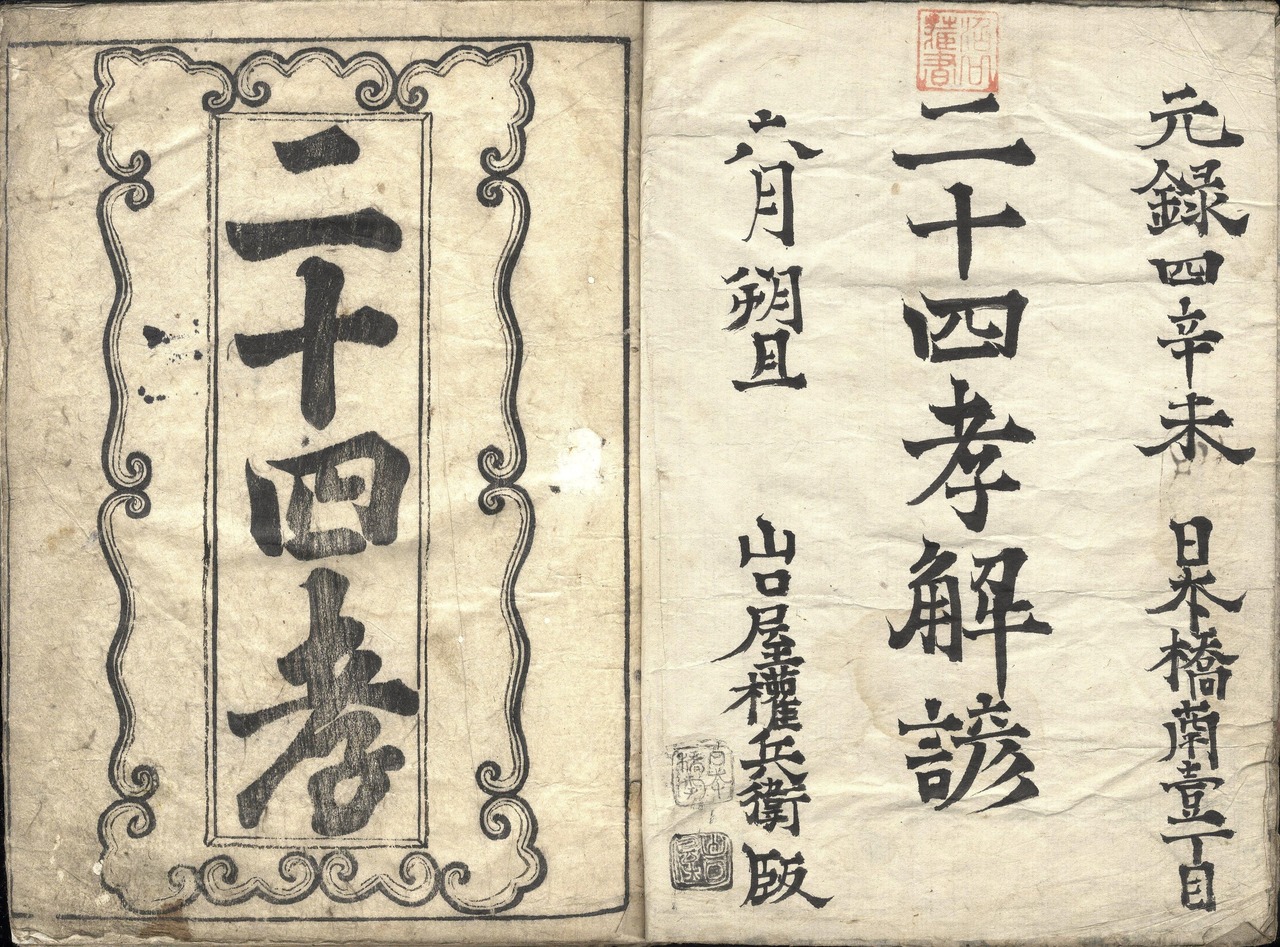 元録四辛未 日本橋南壹丁目
藏書
二十四孝解諺
六月朔旦 山口屋權兵衛版
二十四孝